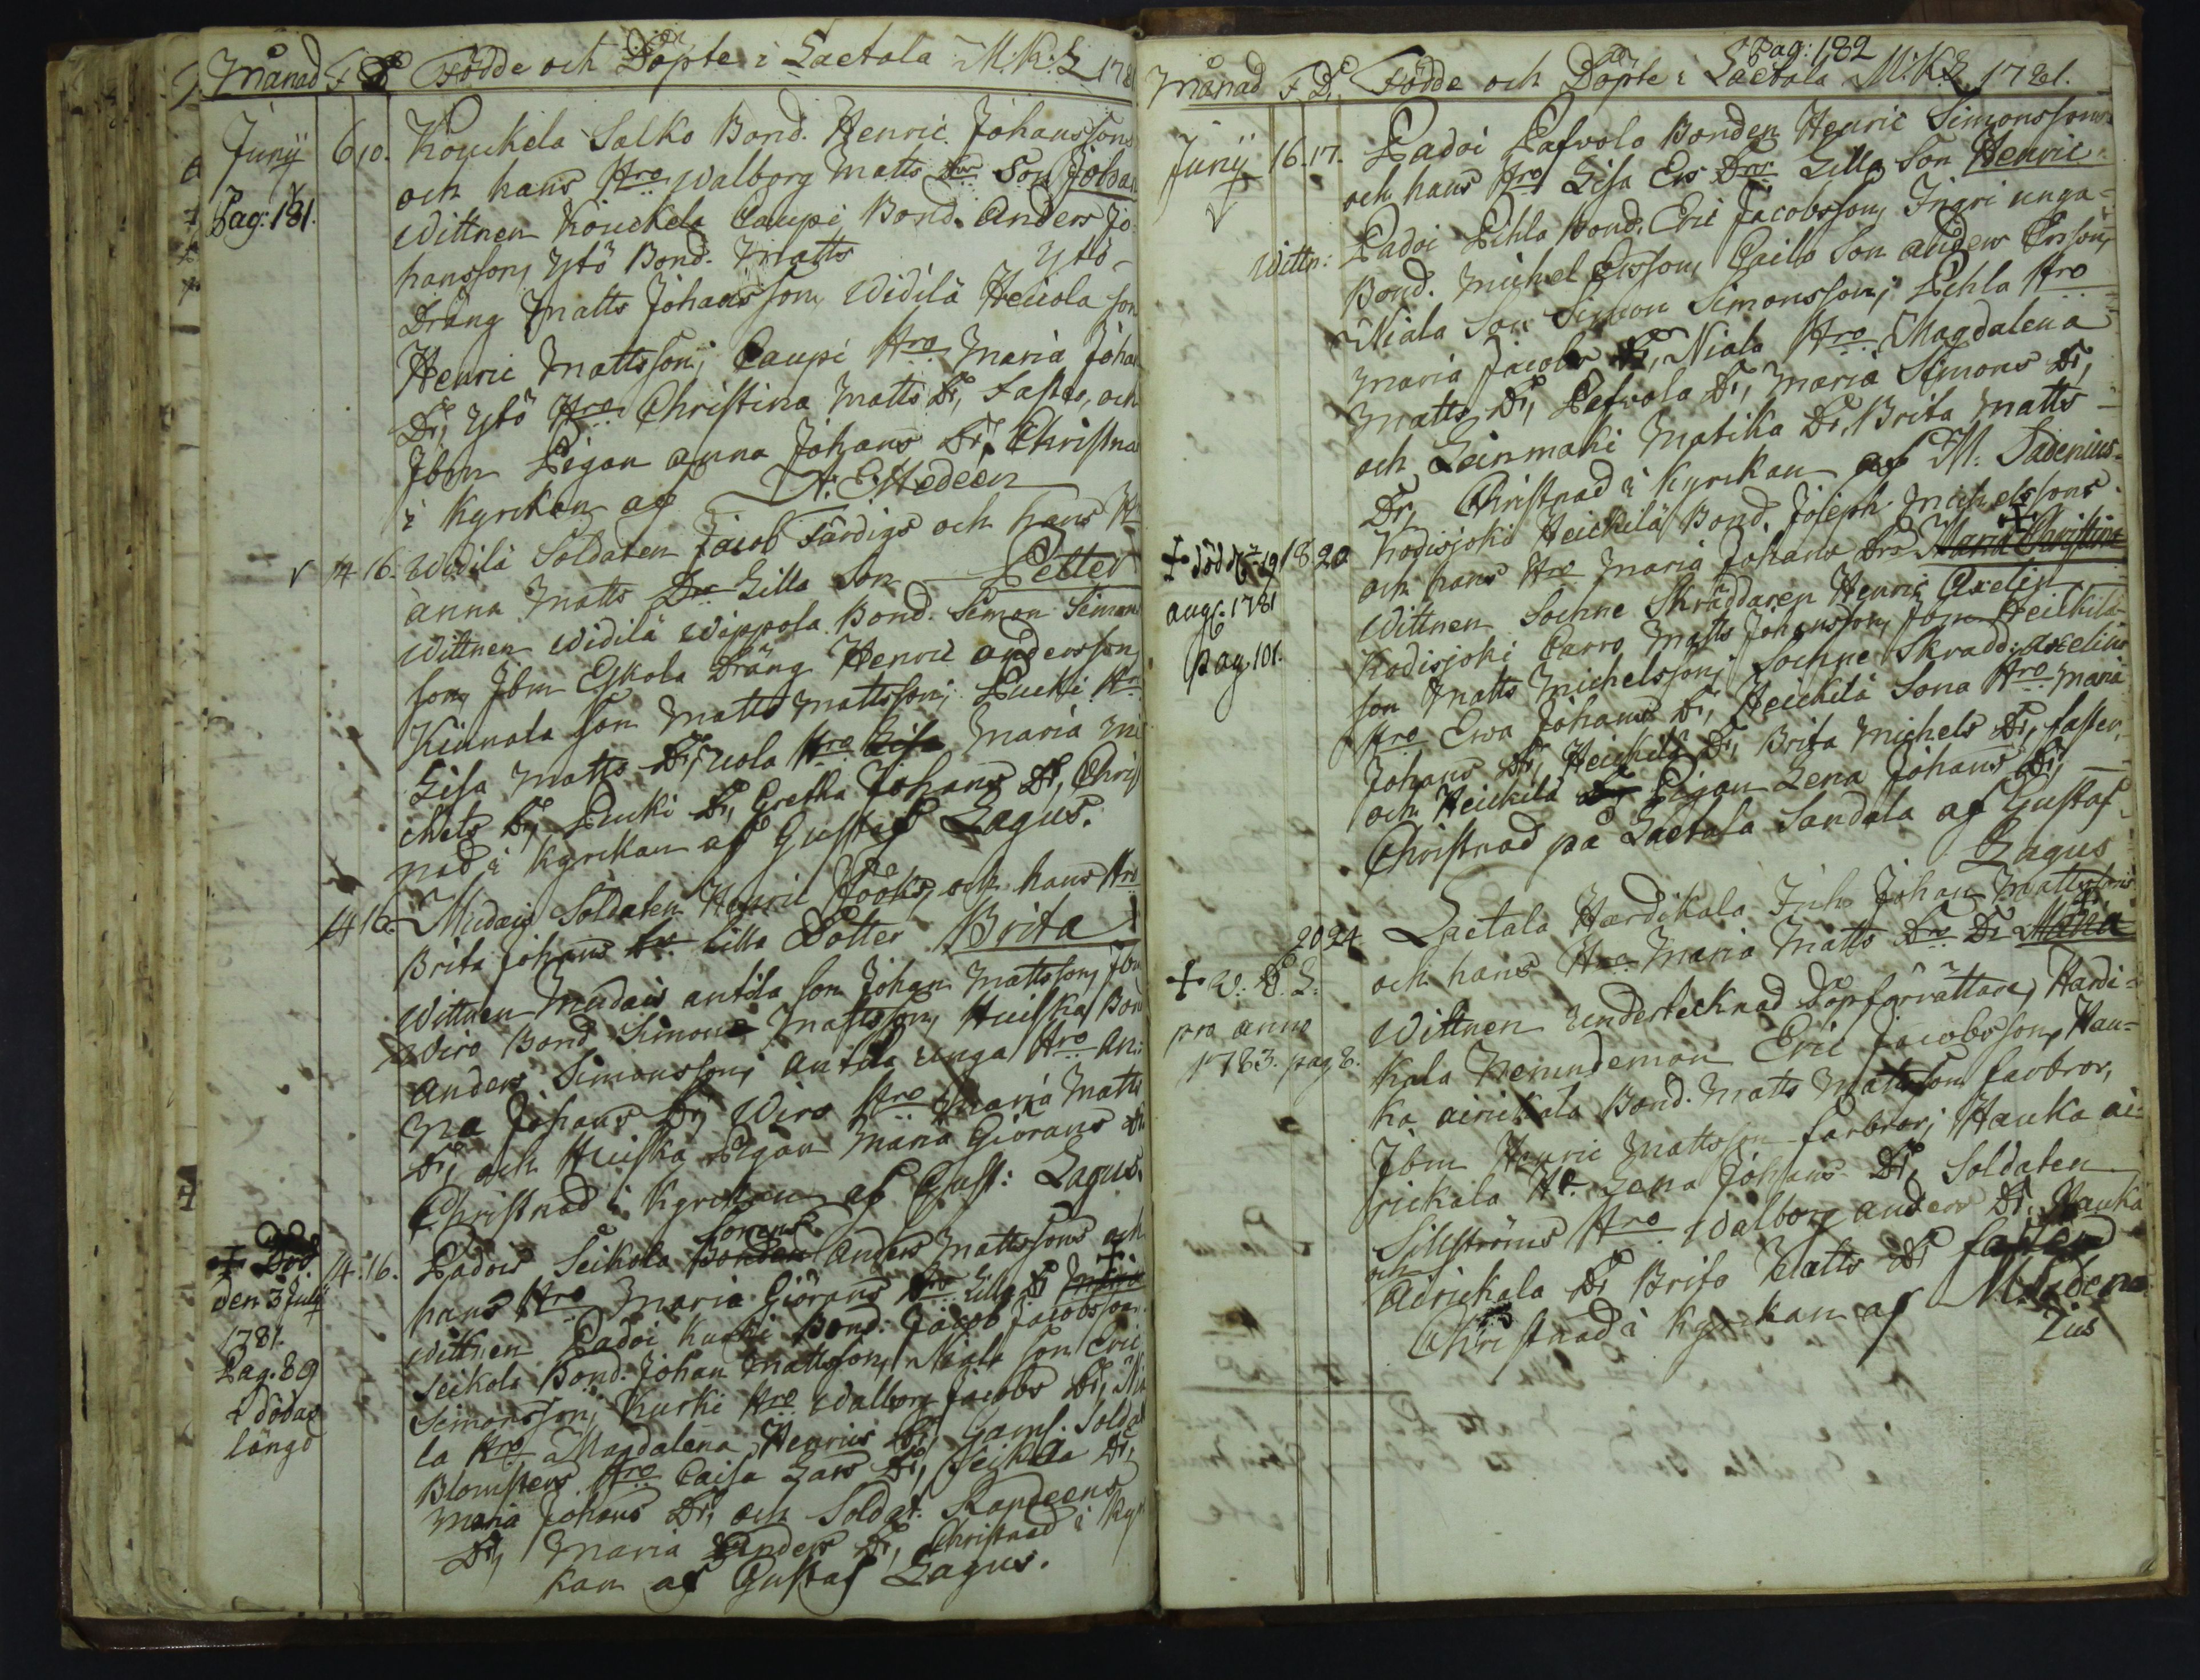 Månad F. D. Födde och Döpte i Laetala M:K:L 178
Junÿ 6 10. Kouckela Salko Bond. Henric Johanssons
och hans Hro Walborg Matts Dr Son Johan
Pag: 181. Wittnen Kouckela Caupi Bond. Anders Jo-
hansson, Ytö Bond. Matts Ytö-
Dräng Matts Johansson, Widilä Heicola son
Henric Mattsson; Caupi Hro Maria Johan
Dr, Ytö Hro Christina Matts Dr, Faster, och
Jbm Pigan Anna Johans Dr, Christnad
i Kyrckan af A: E: Hedeen
14 16. Widilä Soldaten Jacob Färdigs och hans H
Anna Matts Dr Lilla Son Petter
Wittnen Widilä Wäppola Bond. Simon Simons
son, Jbm Eskola Dräng Henric Andersson
Kinnala son Matts Mattsson; Pucki Hr
Lisa Matts Dr, Uola Hro Maria Mi
chels Dr, Pucki Dr, Gretha Johans Dr, Christ
nad i Kyrckan af Gustaf Lagus.
14 16. Mudais Soldaten Henric Pööks, och hans Hro
Brita Johans Dr Lilla Dotter Brita
Wittnen Mudais Antila son Johan Mattsson, Jbm
Wiro Bond Simon Mattsson, Huiska Bond
Anders Simonsson; Antila unga Hro An-
na Johans Dr, Wiro Hro Maria Matts
Dr, och Huiska Pigan Maria Giörans Dr
Christnad i Kyrckan af Gust: Lagus.
Sonens
† Död 14. 16. Padois Seikola Bonden Anders Mattssons och
den 3 Julÿ hans Hro Maria Giörans Dr Lilla Dr Maria †
1781. Wittnen Padoi Kurki Bond. Jacob Jacobsson
Pag. 89 Seikola Bond. Johan Mattsson, Niala son Eric
i dödas Simonsson; Kurki Hro Walborg Jacobs Dr, Nia
längd la Hro Magdalena Henrics Dr, Gaml. Soldat
Blomsters Hro Caisa Lars Dr, Seikola Dr,
Maria Johans Dr, och Soldat. Rapdeens
Dr, Maria Anders Dr, Christnad i Kyr
kan af Gustaf Lagus.
Pag: 182
Månad F. D. Födde och Döpte i Laetala M:K:L 1781.
Junÿ 16. 17. Padoi Pafvolo Bonden Henric Simonssons
och hans Hro Lisa Ers Dr Lilla Son Henric
Wittn: Padoi Pihla Bond. Eric Jacobsson, Ingri unga-
Bond. Michel Ersson, Caila son Anders Ersson,
Niala Son Simon Simonsson; Pihla Hro
Maria Jacobs Dr, Niala Hro Magdalena
Matts Dr, Pafvola Dr, Maria Simons Dr,
och Leinmaki Matika Dr, Brita Matts
Dr, Christnad i Kyrckan af M: Sadenius.
† död d. 19 18 20 Kodisjoki Heickilä Bond. Joseph Michelssons
och hans Hro Maria Johans Dr Maria Christina †
Aug. 1781 Wittnen Sockne Skräddaren Henric Axelin
pag. 101. Kodisjoki Carro Matts Johansson, Jbm Heickilä
son Matts Michelsson; Sockne Skrädd. Axelins
Hro Ewa Johans Dr, Heickilä Sona Hro Maria
Johans Dr, Heickilä Dr, Brita Michels Dr, faster,
och Heickilä Pigan Lena Johans Dr,
Christnad på Laetala Sandala af Gustaf
Lagus
20 24. Laetala Hardikala Inh. Johan Mattssons
och hans Hro Maria Matts Dr Dr Maria †
† V. D. L. Wittnen undertecknad Döpförrättare, Hardi-
pro anno kala Nemndeman Eric Jacobsson, Hau-
1783. pag 8. ka Airickala Bond. Matts Mattsson farbror,
Jbm Henric Mattsson farbror; Hauka ai-
rickala Hr. Lena Johans Dr, Soldaten
Sillströms Hro Walborg Anders Dr, Hauka
och
Airickala Dr Brita Matts Dr faster
Christnad i Kyrckan af M Sadenius